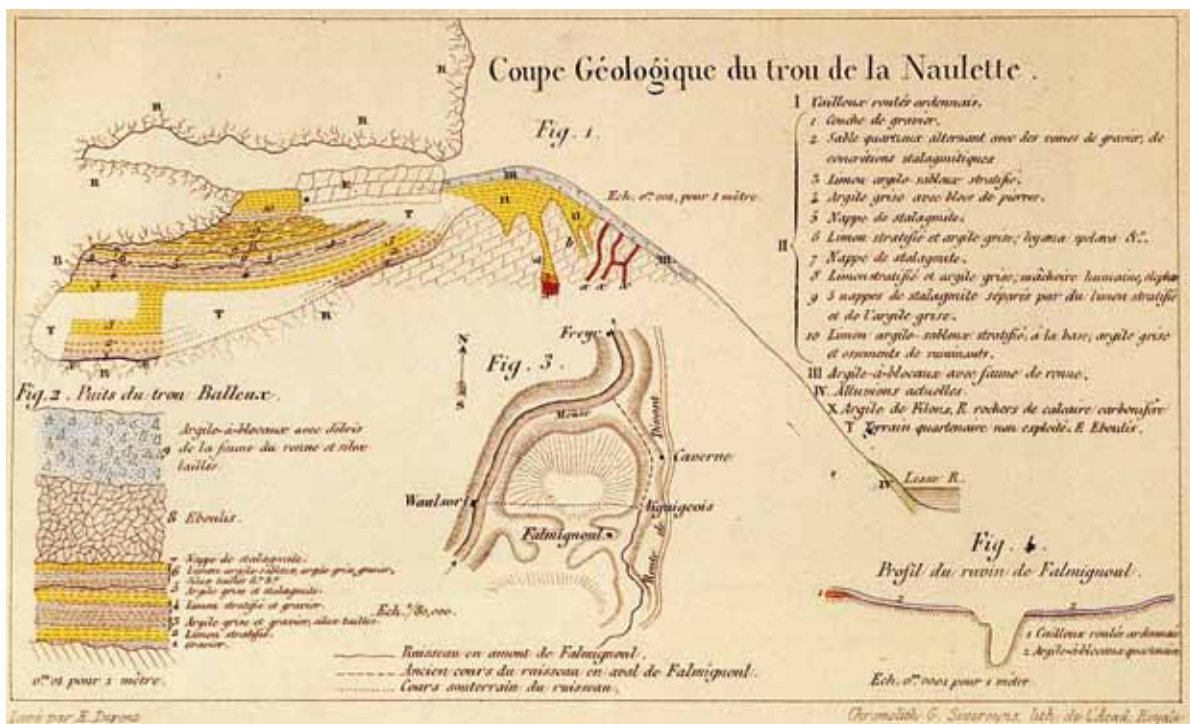 Coupe Géologique du trou de la Naulette.
Fig. 1.
Ech. 0,m 001, pour 1 mètre.
I Cailloux roulés ardennais.
II
1 Couche de gravier.
2 Sable quartzeux alternant avec des veines de gravier, de
concrétions stalagmitiques
3 Limon argilo-sableux stratifié.
4 Argile grise avec blocs de pierres.
5 Nappe de stalagmite.
6 Limon stratifié et argile grise; hyaena spelaea &a.
7 Nappe de stalagmite.
8 Limon stratifié et argile grise; mâchoire humaine, elephas
9 5 nappes de stalagmite séparés par du limon stratifié
et de l'argile grise.
10 Limon argilo-sableux stratifié, à la base; argile grise
et ossements de ruminants.
III Argile-à-blocaux avec faune de renne.
IV. Alluvions actuelles.
X Argile de Filons, R. rochers de calcaire carbonifère
T Terrain quaternaire non exploré. E Eboulis.
Lesse R.
Fig. 2. Puits du trou Balleux.
9 Argile-à-blocaux avec débris
de la faune du renne et silex
taillés
8 Eboulis.
7 Nappe de stalagmite.
6 Limon argilo-sableux, argile gris, gravier,
Silex taillés &a &a
5 Argile gris et stalagmite.
4 Limon stratifié et gravier.
3 Argile grise et gravier, silex taillés.
2 Limon stratifié.
1 Gravier.
0,m 01 pour 1 mètre.
Fig. 3.
N
S
Freyr
Meuse
Dinant
Caverne
Waulsort
Falmignoul
Route de
Ech. 1/80,000.
Ruisseau en amont de Falmignoul.
Ancien cours du ruisseau en aval de Falmignoul.
Cours souterrain du ruisseau.
Fig. 4.
Profil du ravin de Falmignoul.
1 2 2
1 Cailloux roulés ardennais
2 Argile-à-blocaux quaternaire
Ech. 0,m 0001 pour 1 mètr.
Levé par E. Dupont
Chromolith. G. Severeyns, lith. de l'Acad. Royale